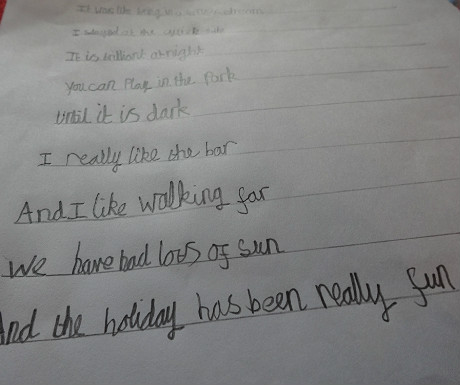 It was like being in a
I at the
It is brilliant at night
You can play in the park
Until it is dark
I really like the bar
And I like walking far
We have had lots of sun
And the holiday has been really fun